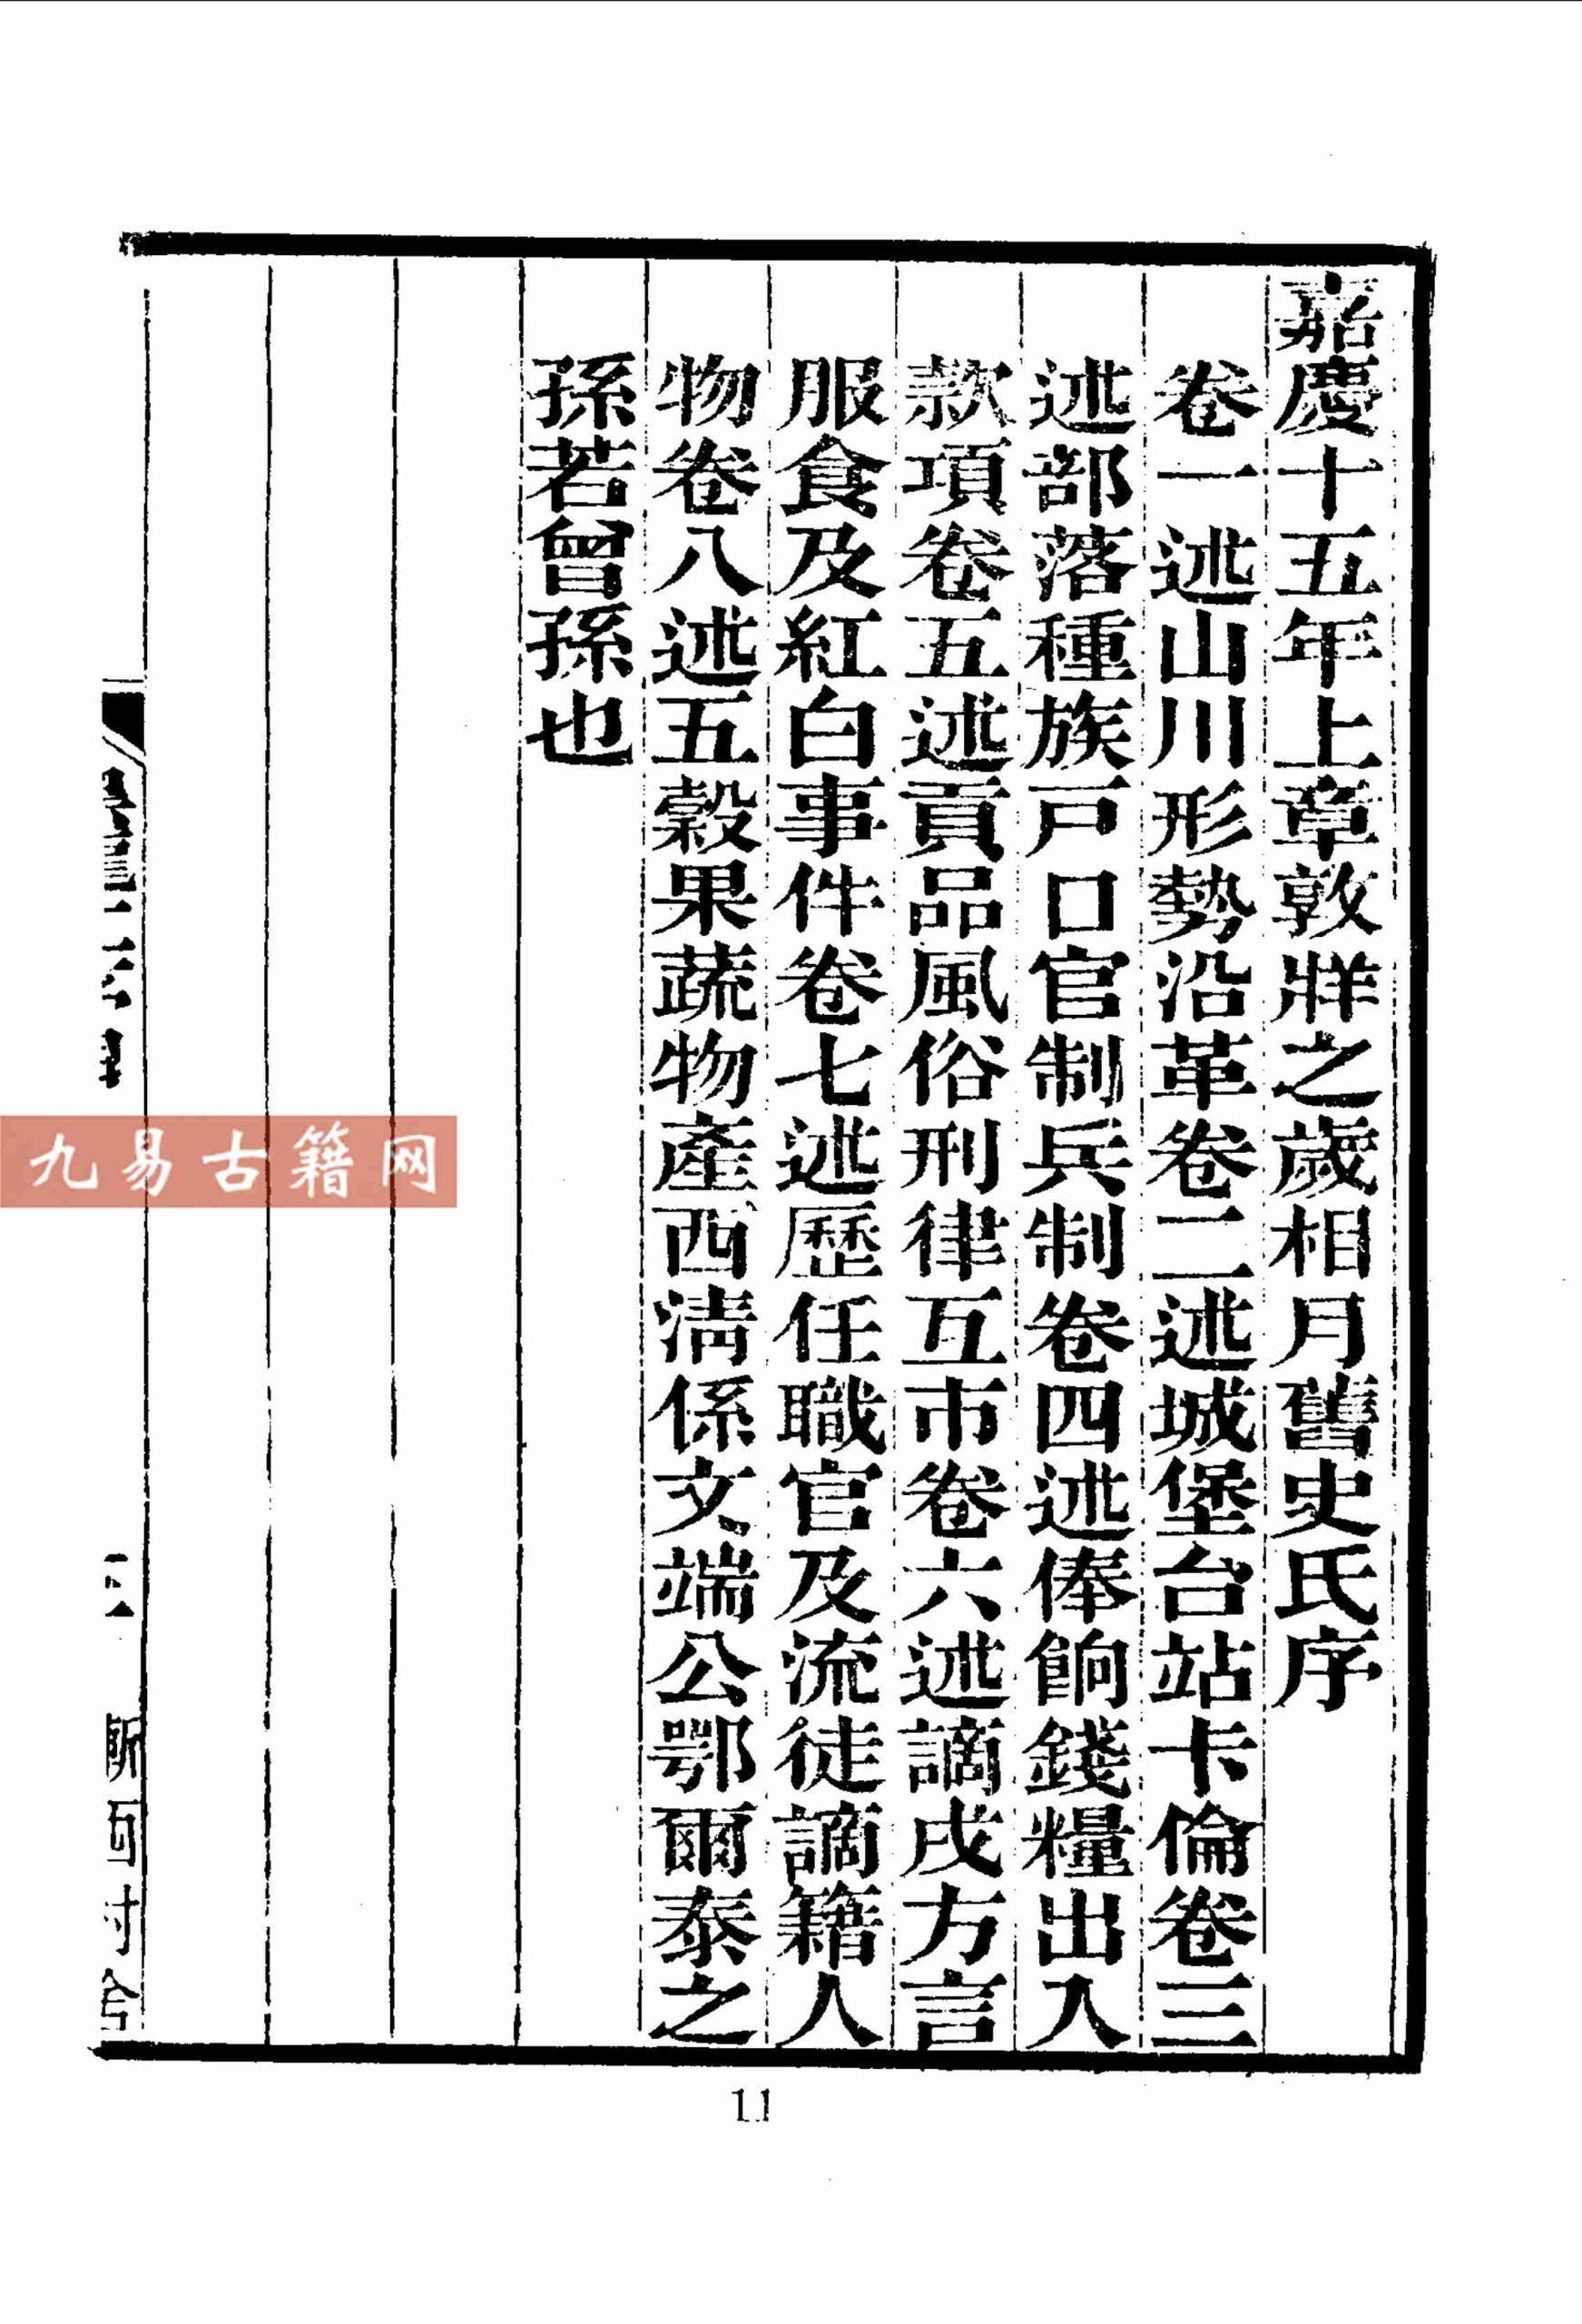 嘉慶十五年上章敦牂之歲相月舊史氏序
卷一述山川形勢沿革卷二述城堡台站卡倫卷三
述部落種族戸口官制兵制卷四述俸餉錢糧出入
款項卷五述貢品風俗刑律互市卷六述謫戍方言
服食及紅白事件卷七述歷任職官及流徒謫籍人
物卷八述五穀果蔬物產西淸係文端公鄂爾泰之
孫若曾孫也
九易古籍网
11